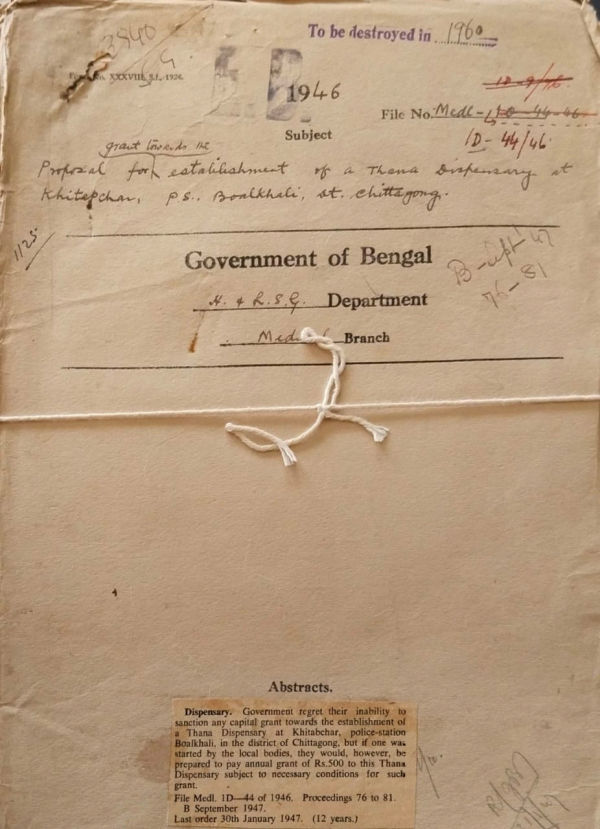 3840
To be destroyed in 1960
Form No. XXXVIII, S.I., 1926.
B
1946
1D-9/46
File No. Medl - 1D-44-46
1D-44/46
Subject
grant towards the
Proposal for establishment of a Thana Dispensary at
Khitapchar, P.S. Boalkhali, dt. Chittagong.
1125
Government of Bengal
H. & L.S.G. Department
B-Sept 47
76-81
Branch
Abstracts.
Dispensary. Government regret their inability to
sanction any capital grant towards the establishment of
a Thana Dispensary at Khitabchar, police-station
Boalkhali, in the district of Chittagong, but if one was
started by the local bodies, they would, however, be
prepared to pay annual grant of Rs.500 to this Thana
Dispensary subject to necessary conditions for such
grant.
File Medl. 1D—44 of 1946. Proceedings 76 to 81.
B September 1947.
Last order 30th January 1947. (12 years.)